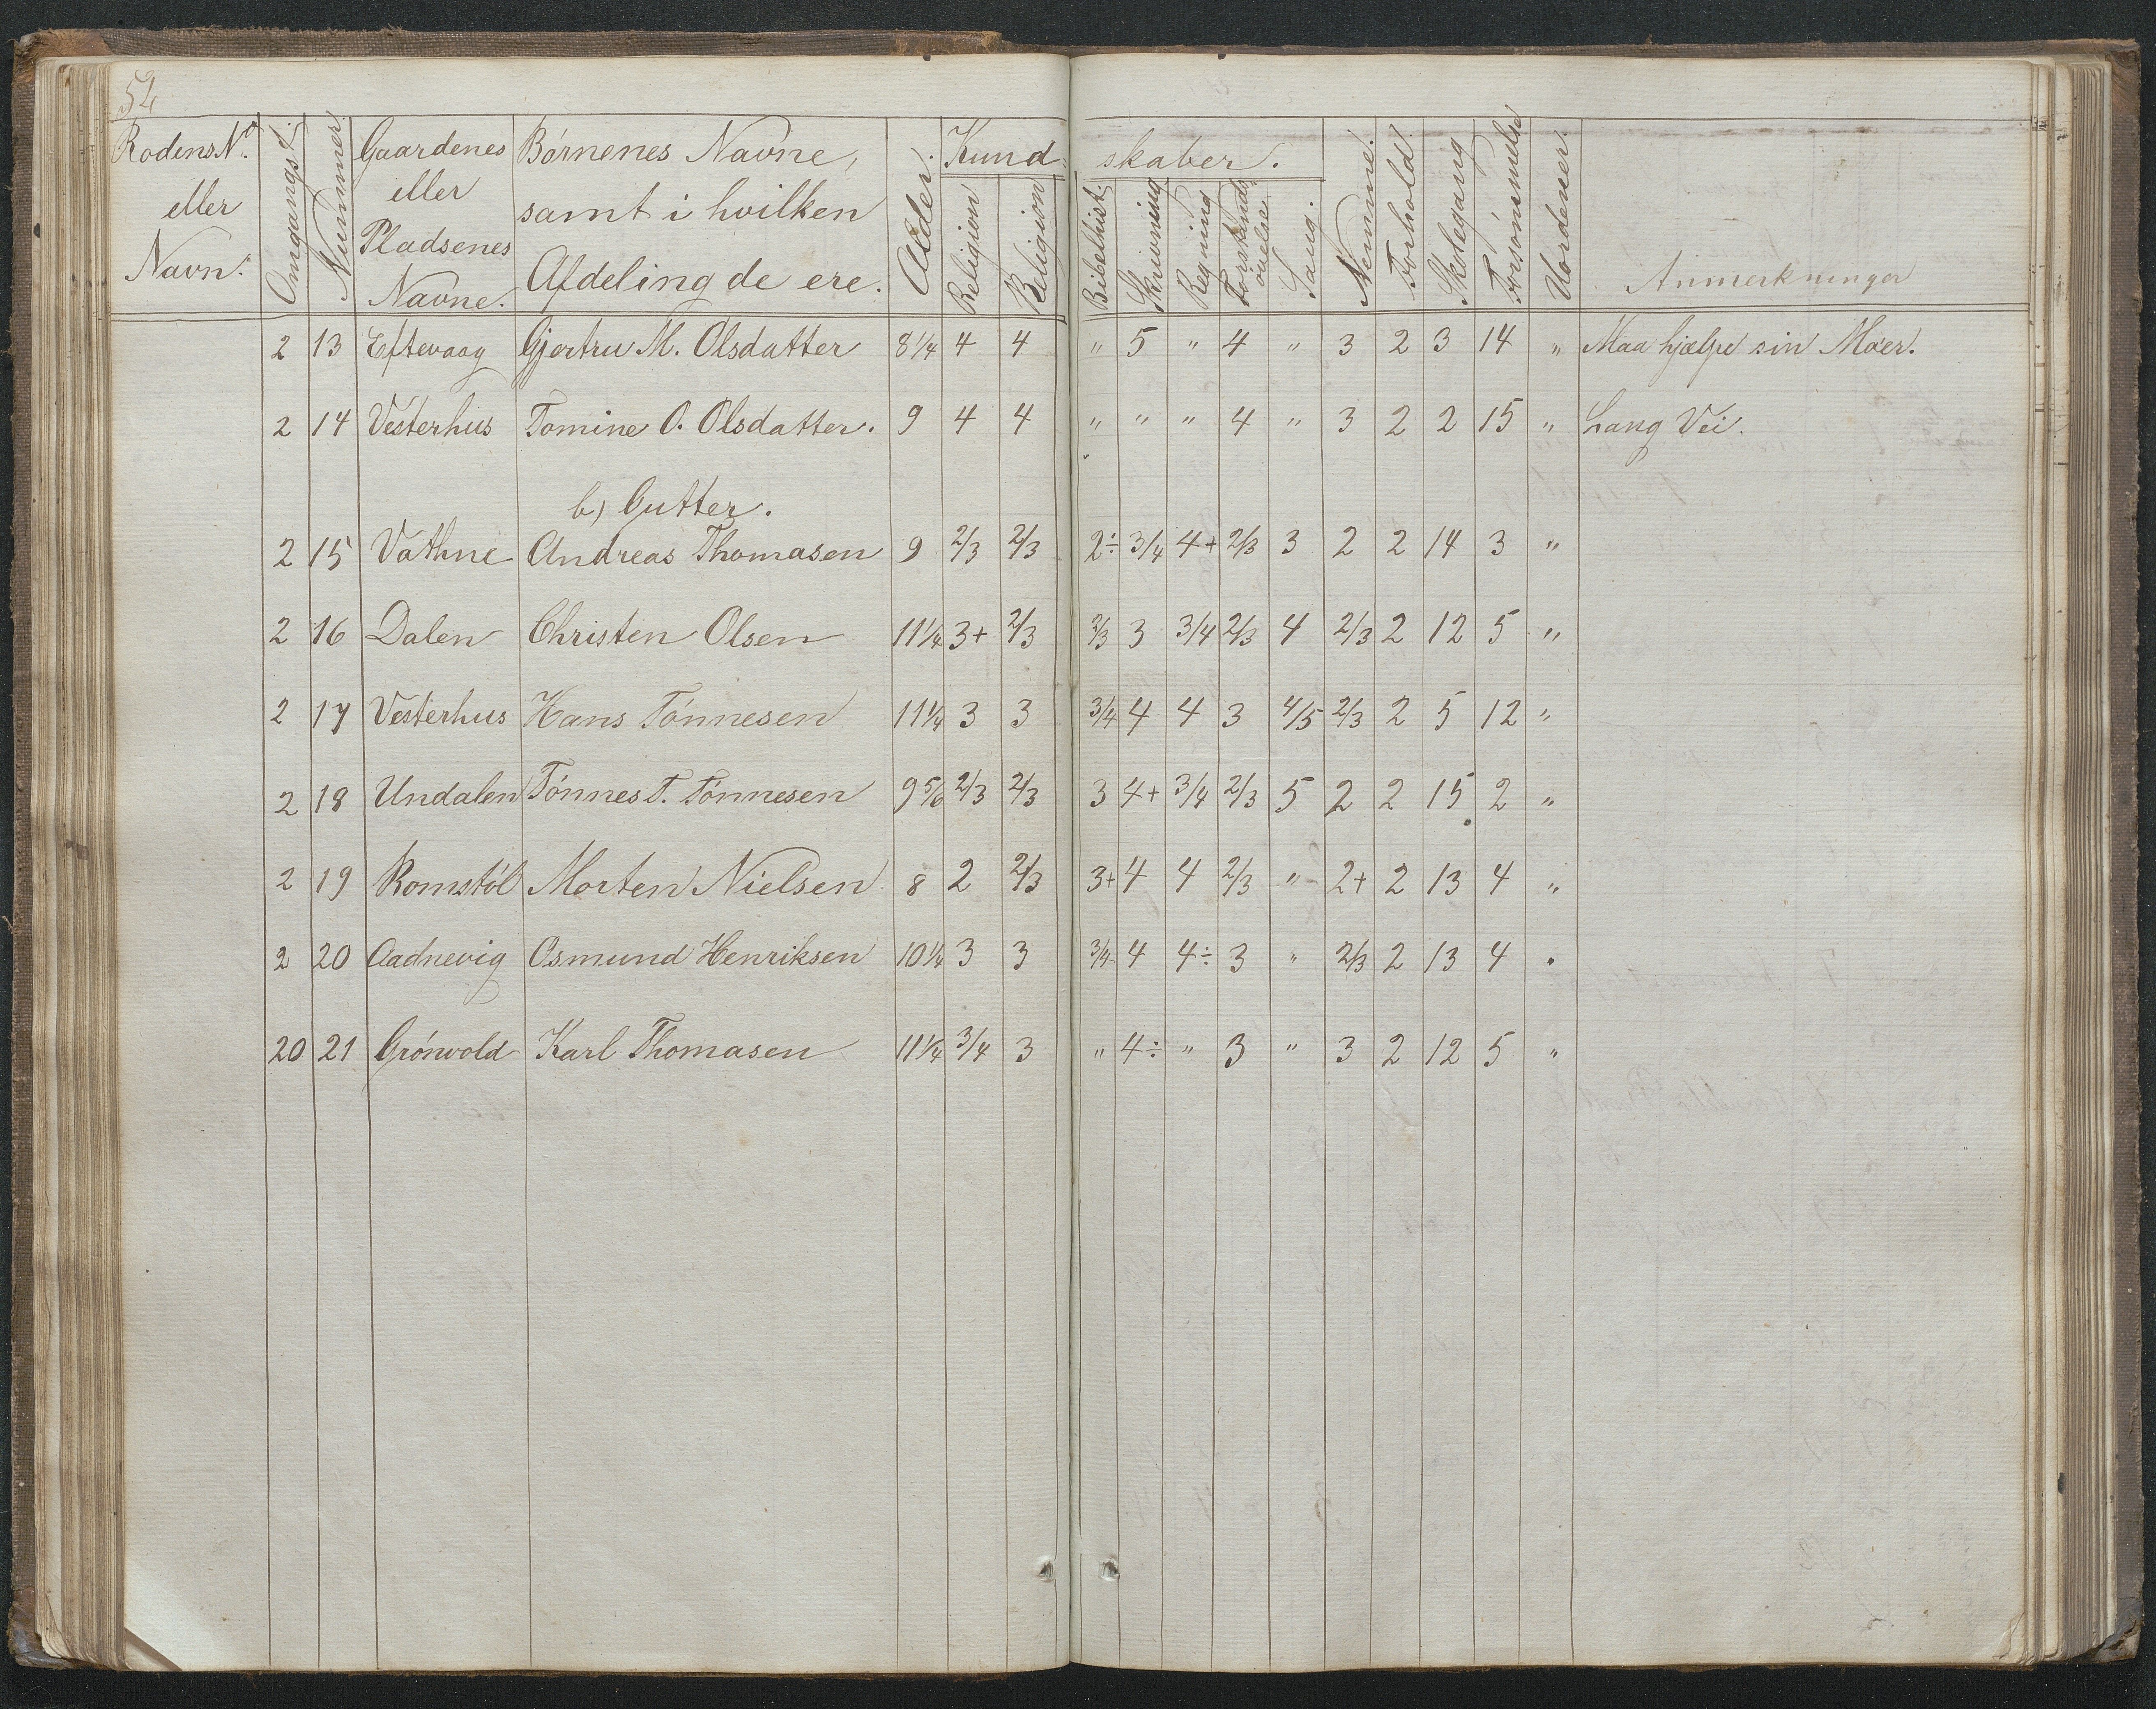 52
Rodens N°. eller Navn. | Omgangsf. | Nummer | Gaardenes eller Pladsenes Navne. | Børnenes Navne, samt i hvilken Afdeling de ere. | Alder. | Kundskaber. Religion | Religion | Bibelhist. | Skrivning | Regning | Forstands øvelse | Sang. | Nemme. | Forhold. | Skolegang | Forsømmelse | Uordener. | Anmerkninger
2 13 Eftevaag Gjertru M. Olsdatter 8 1/4 4 4 " 5 " 4 " 3 2 3 14 " Maa hjælpe sin Moer.
2 14 Vesterhus Tomine O. Olsdatter. 9 4 4 " " " 4 " 3 2 2 15 " Lang Vei.
b) Gutter.
2 15 Vathne Andreas Thomasen 9 2/3 2/3 2÷ 3/4 4+ 2/3 3 2 2 14 3 "
2 16 Dalen Christen Olsen 11 1/4 3+ 2/3 2/3 3 3/4 2/3 4 2/3 2 12 5 "
2 17 Vesterhus Hans Tønnesen 11 1/4 3 3 3/4 4 4 3 4/5 2/3 2 5 12 "
2 18 Undalen Tønnes T. Tønnesen 9 5/6 2/3 2/3 3 4+ 3/4 2/3 5 2 2 15 2 "
2 19 Romstøl Morten Nielsen 8 2 2/3 3+ 4 4 2/3 " 2+ 2 13 4 "
2 20 Aadnevig Osmund Henriksen 10 1/4 3 3 3/4 4 4÷ 3 " 2/3 2 13 4 "
20 21 Grønvold Karl Thomasen 11 1/4 3/4 3 " 4÷ " 3 " 3 2 12 5 "